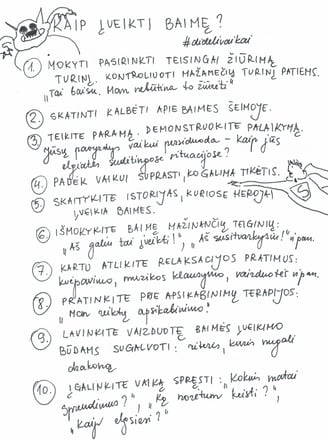 KAIP ĮVEIKTI BAIMĘ?
#didelivaikai
1. MOKYTI PASIRINKTI TEISINGAI ŽIŪRIMĄ
TURINĮ. KONTROLIUOTI MAŽAMEČIŲ TURINĮ PATIEMS.
„Tai baisu. Man nebūtina to žiūrėti“
2. SKATINTI KALBĖTI APIE BAIMES ŠEIMOJE.
3. TEIKITE PARAMĄ. DEMONSTRUOKITE PALAIKYMĄ.
Jūsų pavyzdys vaikui persiduoda - kaip jūs
elgiatės sudėtingose situacijose?
4. PADĖK VAIKUI SUPRASTI, KO GALIMA TIKĖTIS.
5. SKAITYKITE ISTORIJAS, KURIOSE HEROJAI
ĮVEIKIA BAIMES.
6. IŠMOKYKITE BAIMĘ MAŽINANČIŲ TEIGINIŲ:
„Aš galiu tai įveikti!“, „Aš susitvarkysiu!“ ir pan.
7. KARTU ATLIKITE RELAKSACIJOS PRATIMUS:
kvėpavimo, muzikos klausymo, vaizduotės ir pan.
8. PRATINKITE PRIE APSIKABINIMŲ TERAPIJOS:
„Man reiktų apsikabinimo!“
9. LAVINKITE VAIZDUOTĘ BAIMĖS ĮVEIKIMO
BŪDAMS SUGALVOTI: riteris, kuris nugali
drakoną
10. ĮGALINKITE VAIKĄ SPRĘSTI: „Kokius matai
sprendimus?“, „Ką norėtum keisti?“,
„Kaip elgsiesi?“